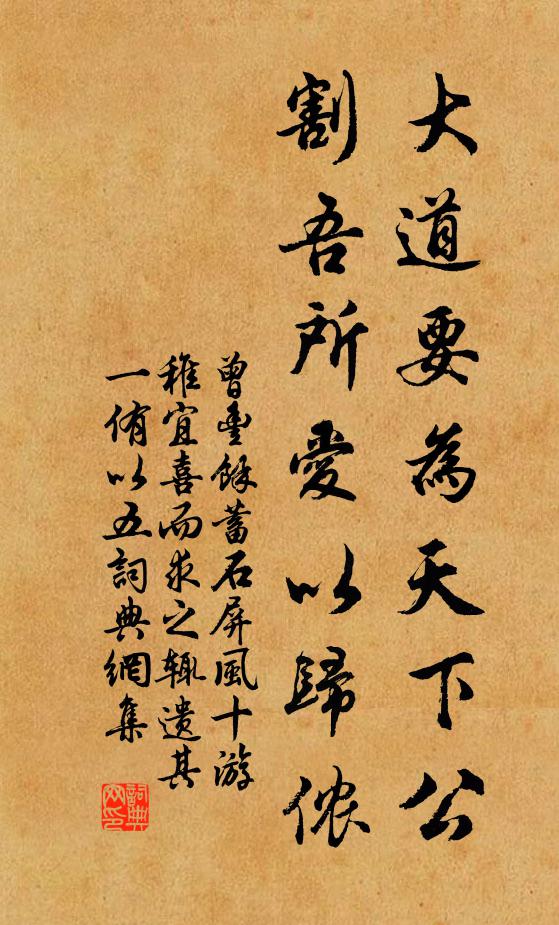 大道要為天下公
割吾所愛以歸侬
曾豐餘蓄石屏風十游
稚宜喜而求之辄遗其
一侑以五詞典網集
詞典
网印